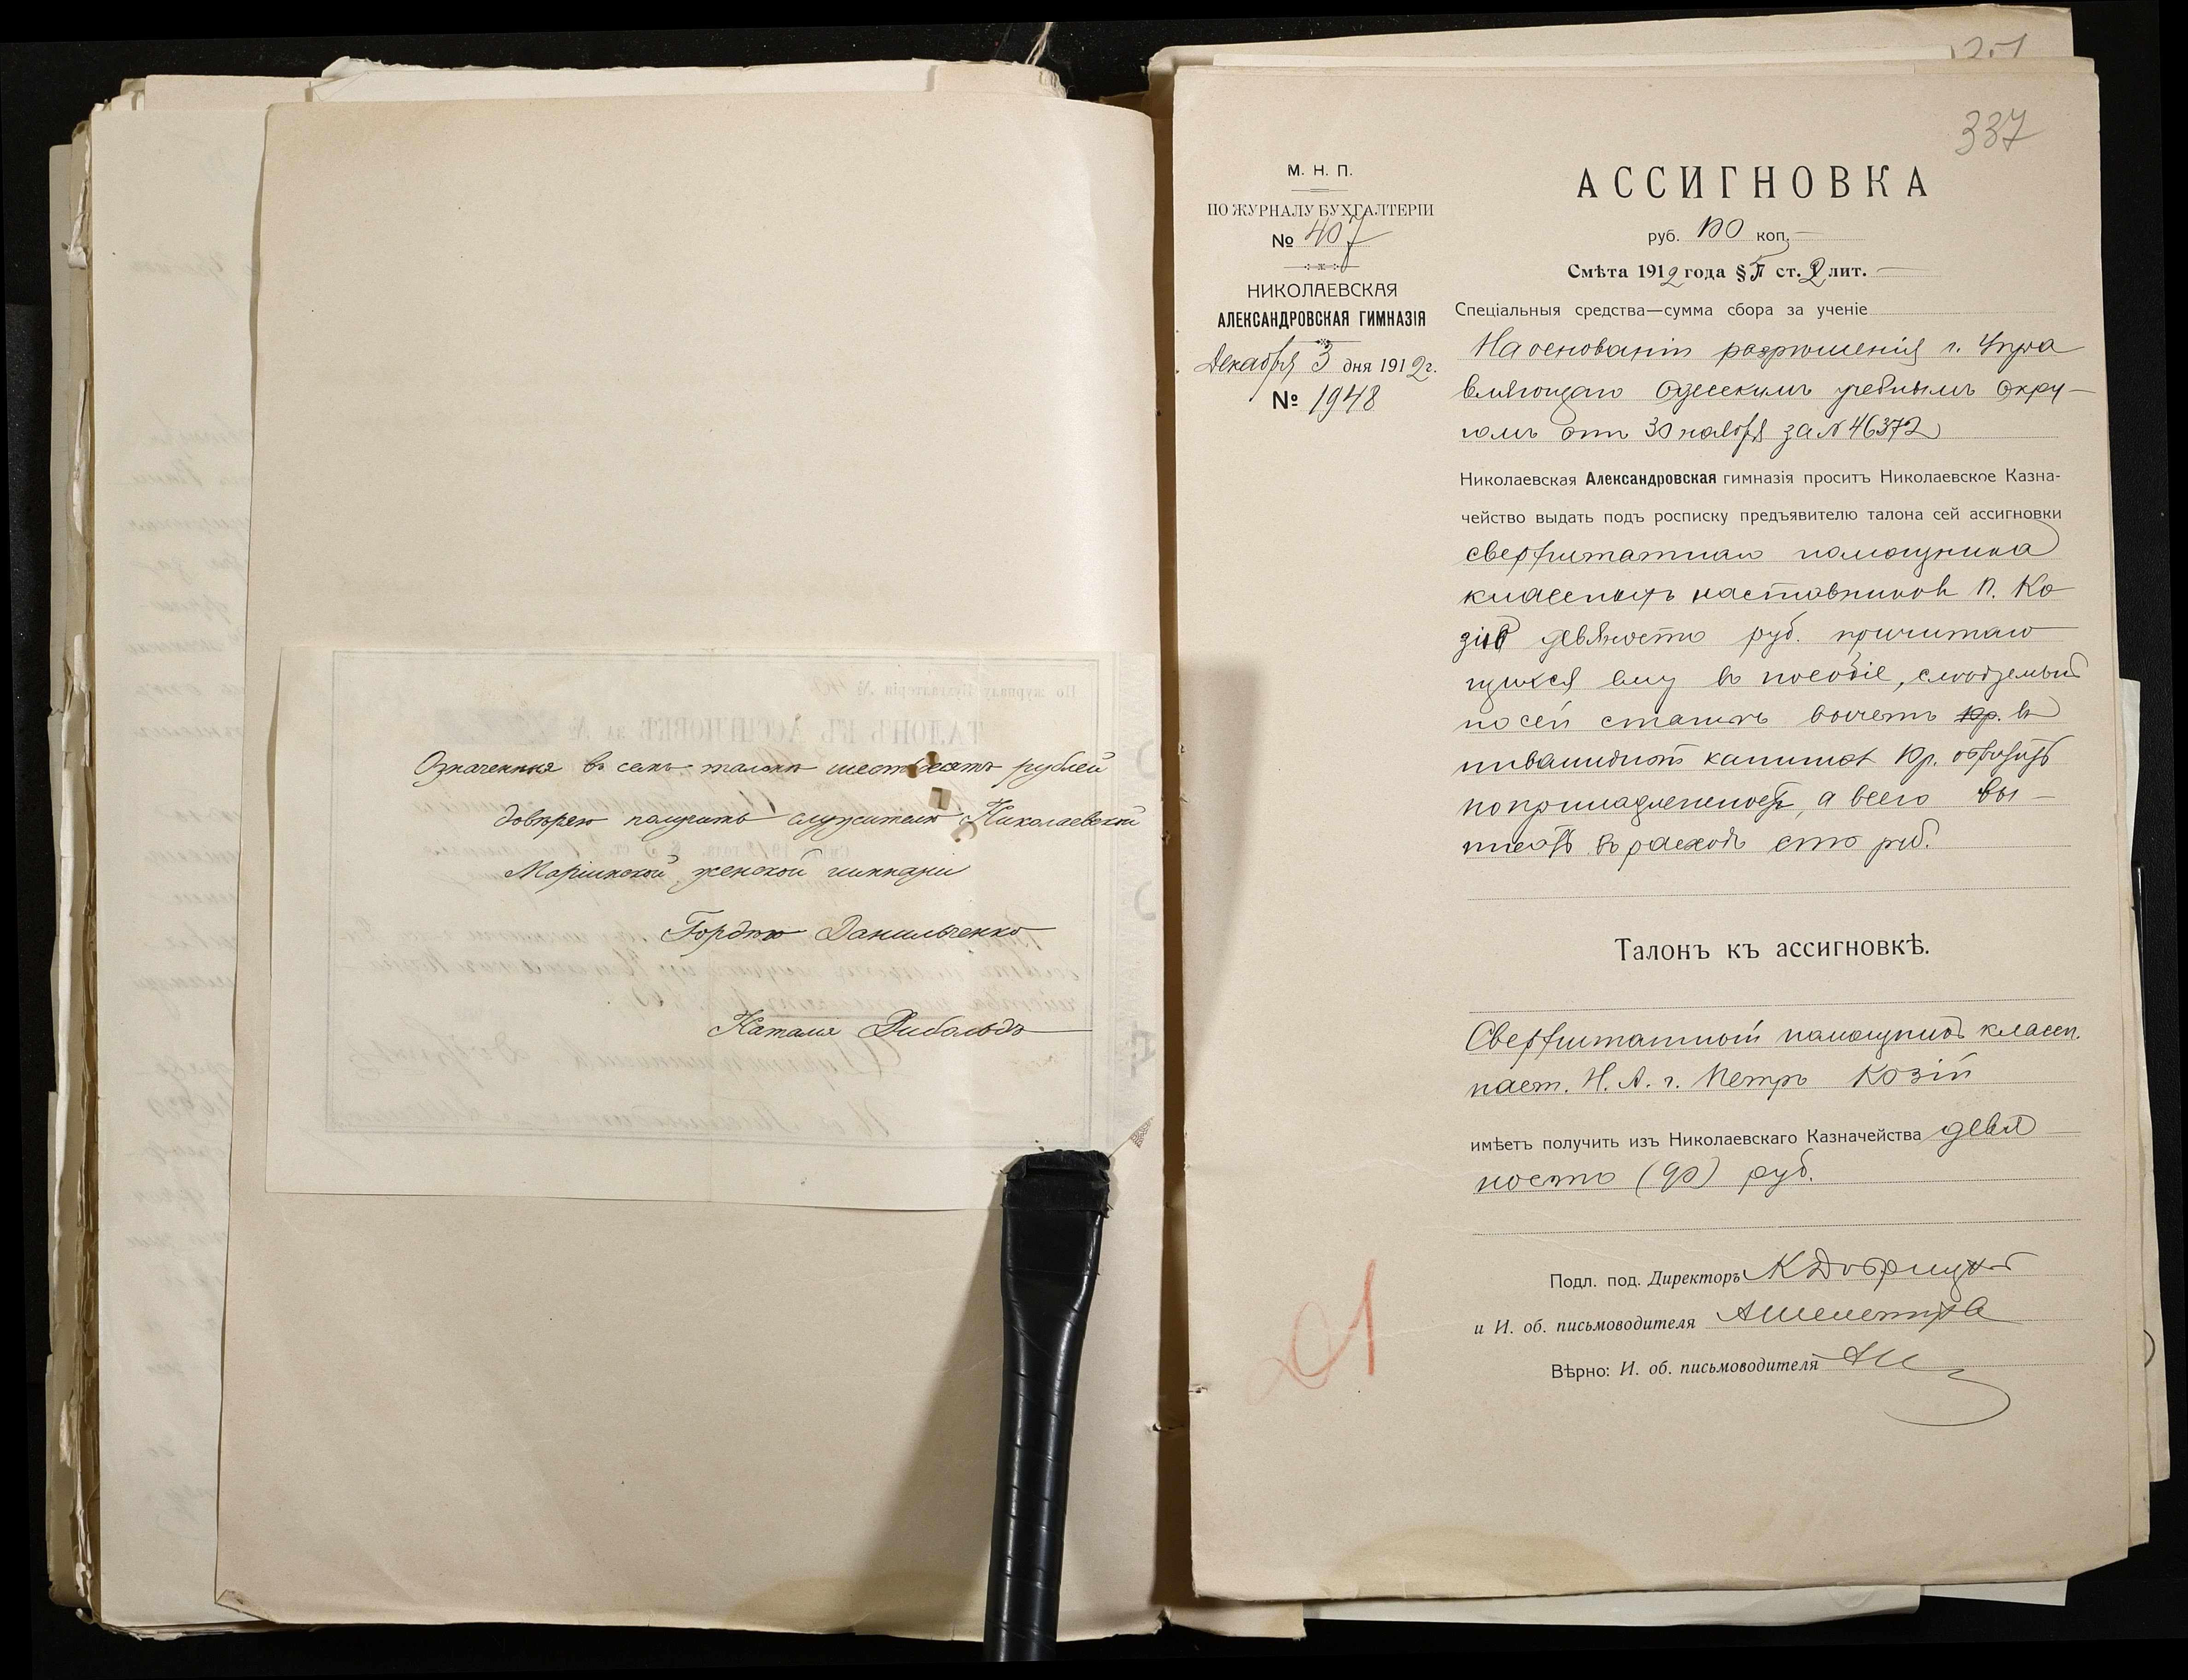 Означенные въ семъ талонѣ шестьдесятъ рублей
довѣряю получить служителю Николаевской
Маріинской женской гимназіи
Гордѣю Данильченко
Наталія
337
М. Н. П.
ПО ЖУРНАЛУ БУХГАЛТЕРІИ
№ 407
НИКОЛАЕВСКАЯ
АЛЕКСАНДРОВСКАЯ ГИМНАЗІЯ
Декабря 3 дня 1912 г.
№ 1948
АССИГНОВКА
руб. 100 коп. —
Смѣта 1912 года § ст. 2 лит. —
Спеціальныя средства—сумма сбора за ученіе
На основаніи разрѣшенія г. Упра
вляющаго Одесскимъ учебнымъ Окру-
гомъ отъ 30 ноября за № 46372
Николаевская Александровская гимназія проситъ Николаевское Казна-
чейство выдать подъ росписку предъявителю талона сей ассигновки
сверхштатнаго помощника
классныхъ наставниковъ П. Ко
зія девяносто руб. причитаю
щихся ему въ пособіе,
по сей статьѣ вычетъ въ
инвалидный капиталъ 10 р. обратить
по принадлежности, а всего вы-
писать въ расходъ сто руб.
Талонъ къ ассигновкѣ.
Сверхштатный помощникъ классн.
наст. Н. А. г. Петръ Козій
имѣетъ получить изъ Николаевскаго Казначейства девя
носто (90) руб.
Подл. под. Директоръ К Добрицкій
и И. об. письмоводителя
Вѣрно: И. об. письмоводителя